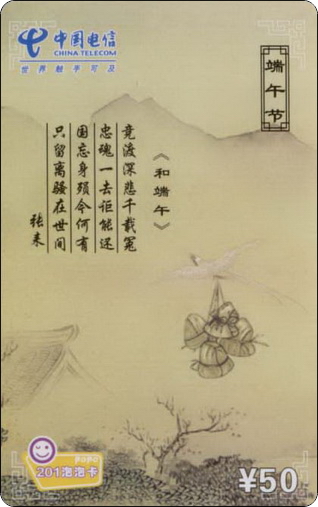 中国电信
CHINA TELECOM
世界触手可及
端午节
《和端午》
竞渡深悲千载冤
忠魂一去讵能还
国忘身殒今何有
只留离骚在世间
张耒
PoPo
201泡泡卡
¥50